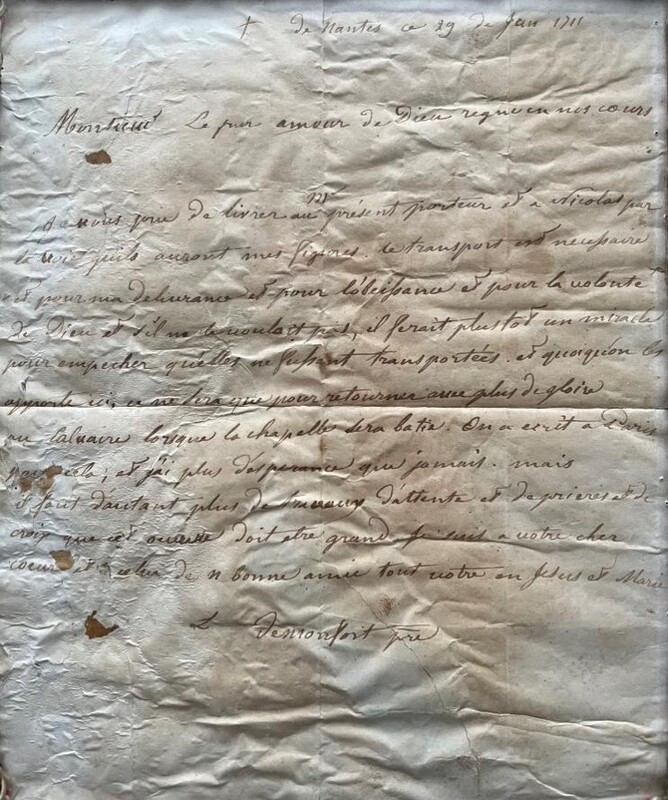 † de Nantes ce 29 de Jan 1711
Monsieur Le pur amour de Dieu regne en nos cœurs
Je vous prie de livrer au présent porteur et a Nicolas par
quils auront mes figures. le transport est necessaire
et pour ma delivrance et pour lobeissance et pour la volonté
De Dieu et s'il ne le voulait pas, il ferait plustot un miracle
pour empecher qu'elles ne fussent transportées. et quoiqu'on les
apporte ici, ce ne sera que pour retourner avec plus de gloire
au Calvaire lorsque la chapelle sera batie. On a ecrit a Paris
pour cela; et j'ai plus desperance que jamais. mais
il faut d'autant plus de d'attente et de prieres et de
croix que cet ouvrage doit etre grand Je suis a votre cher
coeur et a celui de n bonne amie tout votre en Jesus et Marie
L Demonfort pre